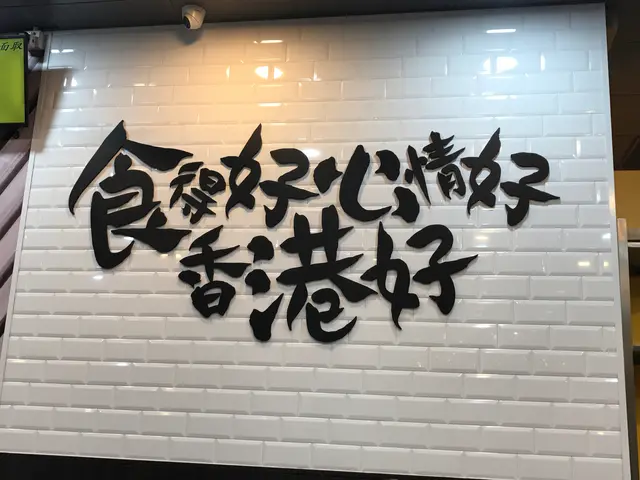 食得好心情好
香港好